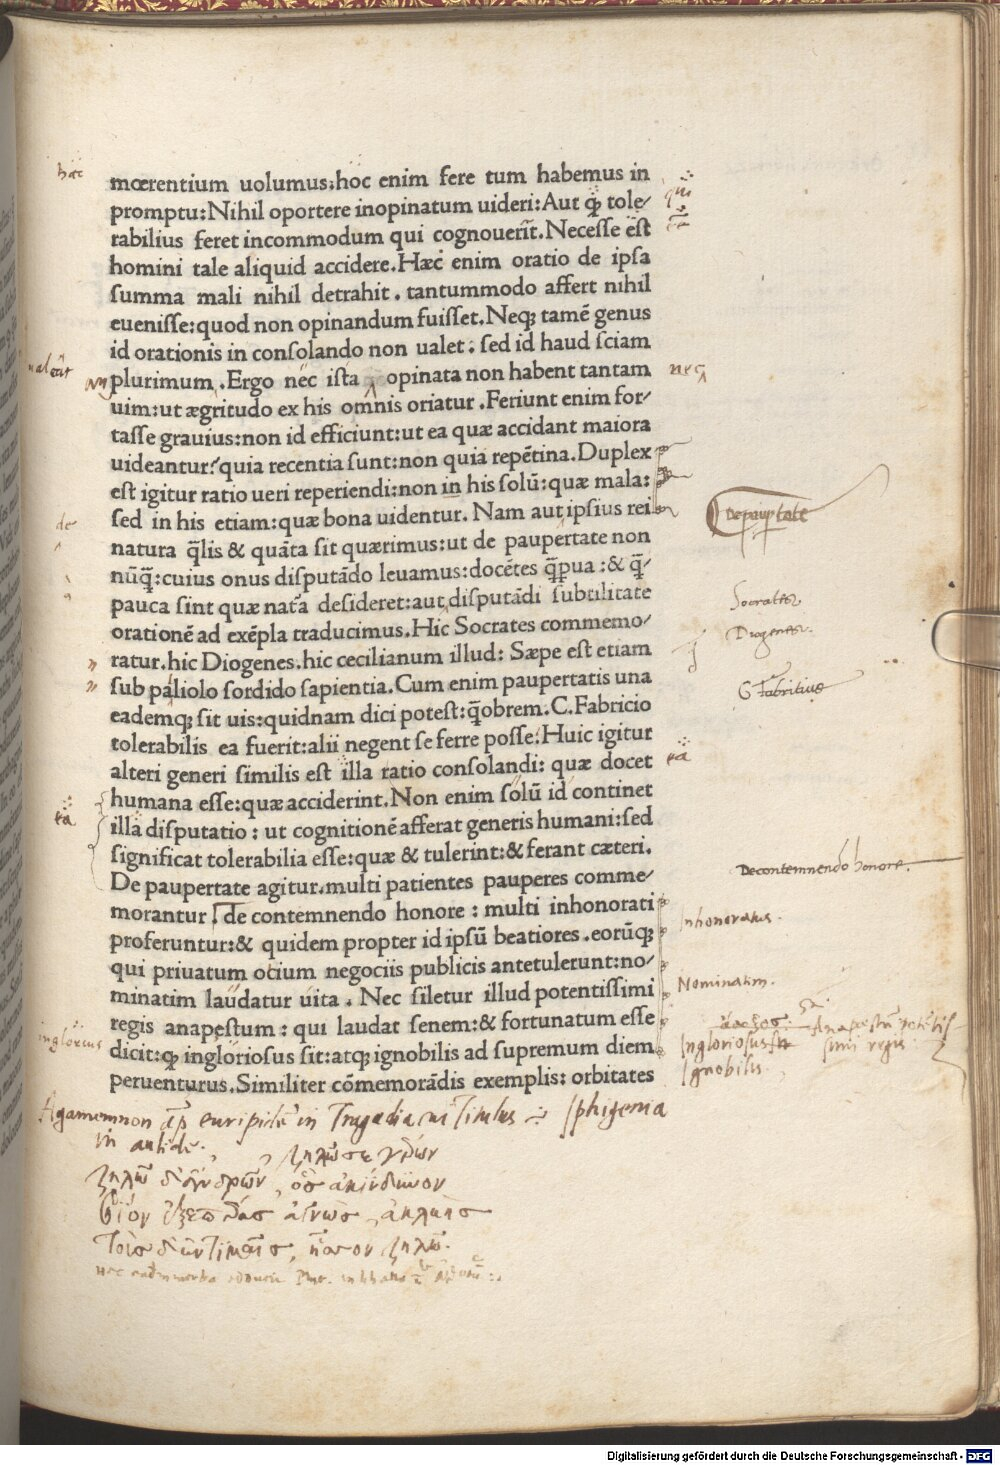 hæc
mœrentium uolumus;hoc enim fere tum habemus in
promptu:Nihil oportere inopinatum uideri:Aut ꝙ tole/
qui
rabilius feret incommodum qui cognouerit̄.Necesse est
homini tale aliquid accidere.Hæc enim oratio de ipsa
summa mali nihil detrahit . tantummodo affert nihil
euenisse:quod non opinandum fuisset.Neq; tamē genus
id orationis in consolando non ualet . sed id haud sciam
an plurimum .Ergo nec ista opinata non habent tantam
nec
uim:ut ægritudo ex his omnis oriatur .Feriunt enim for/
tasse grauius:non id efficiunt:ut ea quæ accidant maiora
uideantur:quia recentia sunt:non quia repētina.Duplex
est igitur ratio ueri reperiendi:non in his solū:quæ mala:
sed in his etiam:quæ bona uidentur. Nam aut ipsius rei
De paupertate
de
natura q̄lis & quāta sit quærimus:ut de paupertate non
nūq̄:cuius onus disputādo leuamus:docētes q̄ꝓua :& q̄/
pauca sint quæ nat̄a desideret:aut disputādi subtilitate
Socrates
orationē ad exēpla traducimus.Hic Socrates commemo/
Diogenes.
ratur.hic Diogenes.hic cecilianum illud: Sæpe est etiam
sub paliolo sordido sapientia.Cum enim paupertatis una
G Fabritius
eademq; sit uis:quidnam dici potest:q̄obrem.C.Fabricio
tolerabilis ea fuerit:alii negent se ferre posse.Huic igitur
alteri generi similis est illa ratio consolandi: quæ docet
ea
humana esse:quæ acciderint.Non enim solū id continet
ea
illa disputatio : ut cognitionē afferat generis humani:sed
significat tolerabilia esse:quæ & tulerint:& ferant cæteri.
De contemnendo honore.
De paupertate agitur.multi patientes pauperes comme/
morantur . de contemnendo honore : multi inhonorati
Inhonoratus.
proferuntur:& quidem propter id ipsū beatiores .eorūq;
qui priuatum otium negociis publicis antetulerunt:no/
Nominatim.
minatim laudatur uita . Nec siletur illud potentissimi
regis anapestum : qui laudat senem:& fortunatum esse
Anapestū potētis
simi regis
inglorius
dicit:ꝙ ingloriosus sit:atq; ignobilis ad supremum diem
Ingloriosus
Ignobilis.
peruenturus.Similiter cōmemorādis exemplis: orbitates
Agamemnon ap̄ euripidē in Tragœdia cui Titulus : Iphigenia
in aulide.
ζηλῶ σε γέρων
ζηλῶ δ' ἀνδρῶν, ὃς ἀκίνδυνον
βίον ἐξεπέρασ' ἀγνὼς, ἀκλεὴς
τοὺς δ' ἐν τιμαῖς, ἧσσον ζηλῶ.